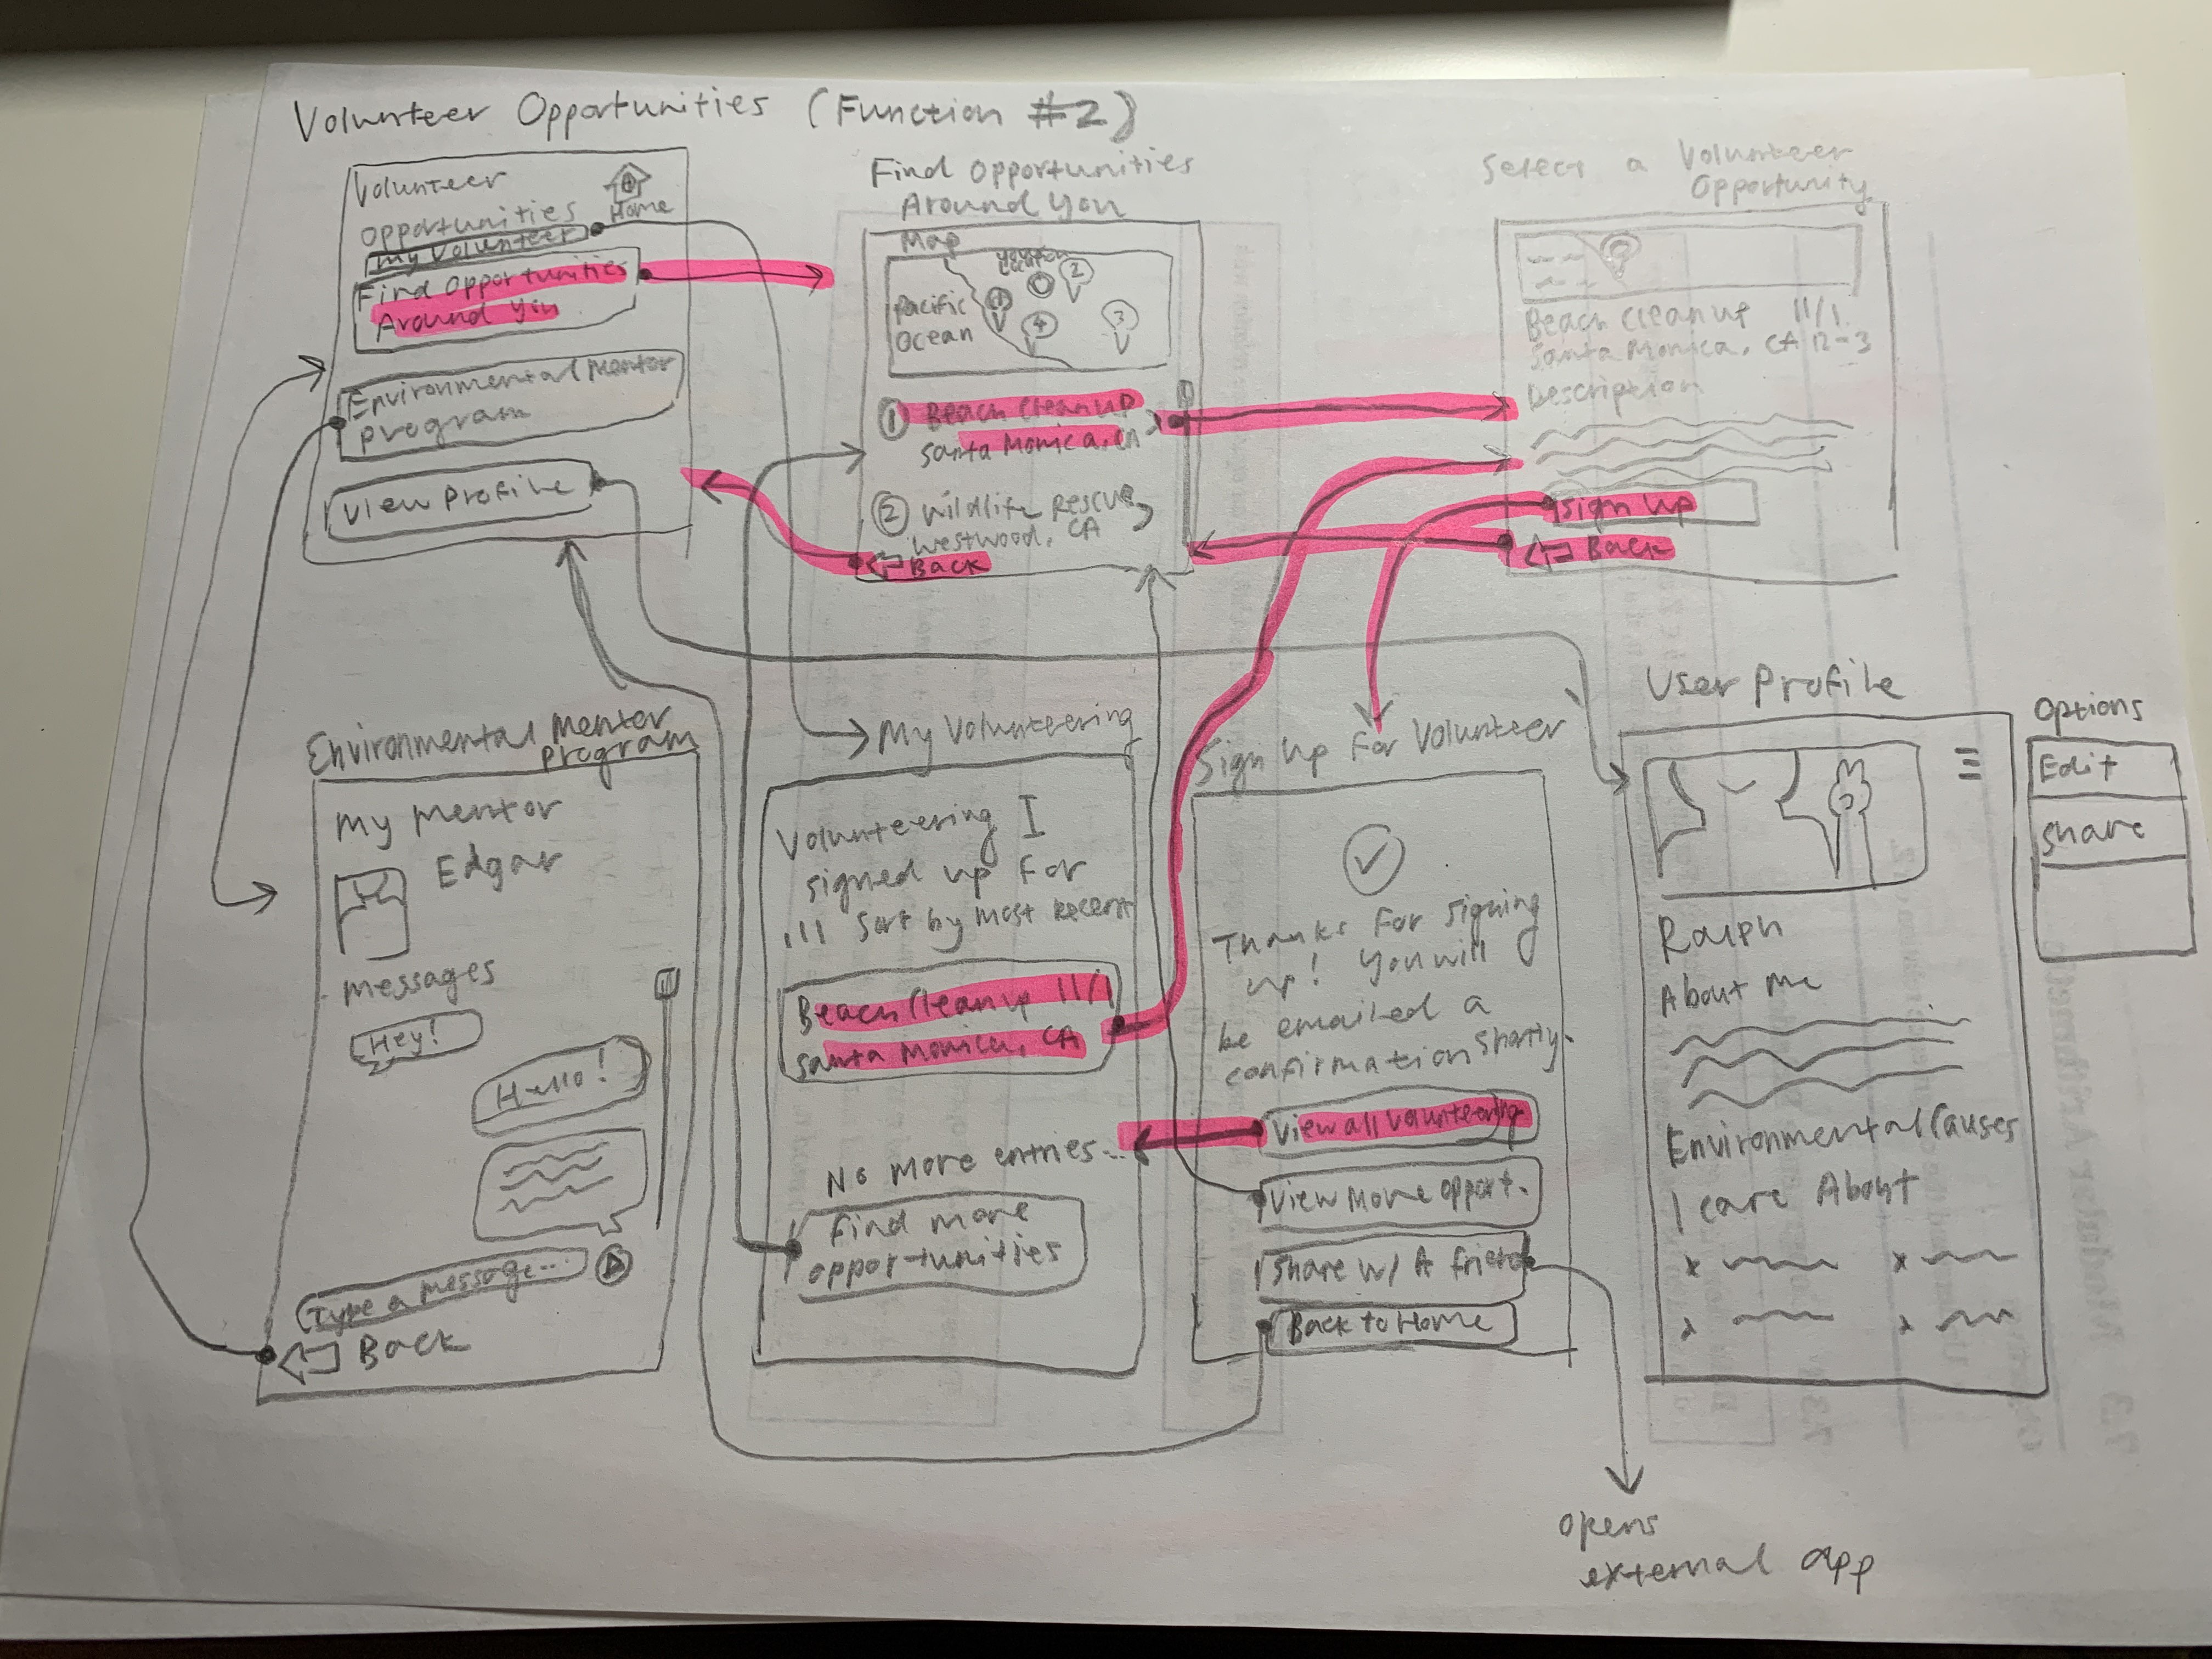 Volunteer Opportunities (Function #2)
Volunteer
opportunities
Home
My Volunteer
Find opportunities
Around you
Environmental Mentor
program
View Profile
Find Opportunities
Around You
Map
Pacific
Ocean
1
2
3
4
① Beach Cleanup
Santa Monica, CA
② Wildlife Rescue
Westwood, CA
Back
Select a Volunteer
Opportunity
Beach Cleanup 11/1
Santa Monica, CA 12-3
Description
Sign Up
Back
Environmental Mentor
Program
My Mentor
Edgar
Messages
Hey!
Hello!
Type a message...
Back
My Volunteering
Volunteering I
signed up for
Sort by Most Recent
Beach Cleanup 11/1
Santa Monica, CA
No more entries...
Find more
opportunities
Sign Up For Volunteer
Thanks for signing
up! You will
be emailed a
confirmation shortly.
View all volunteering
View More opport.
Share w/ A friend
Back to Home
opens
external app
User Profile
Ralph
About Me
Environmental Causes
I care About
Options
Edit
Share